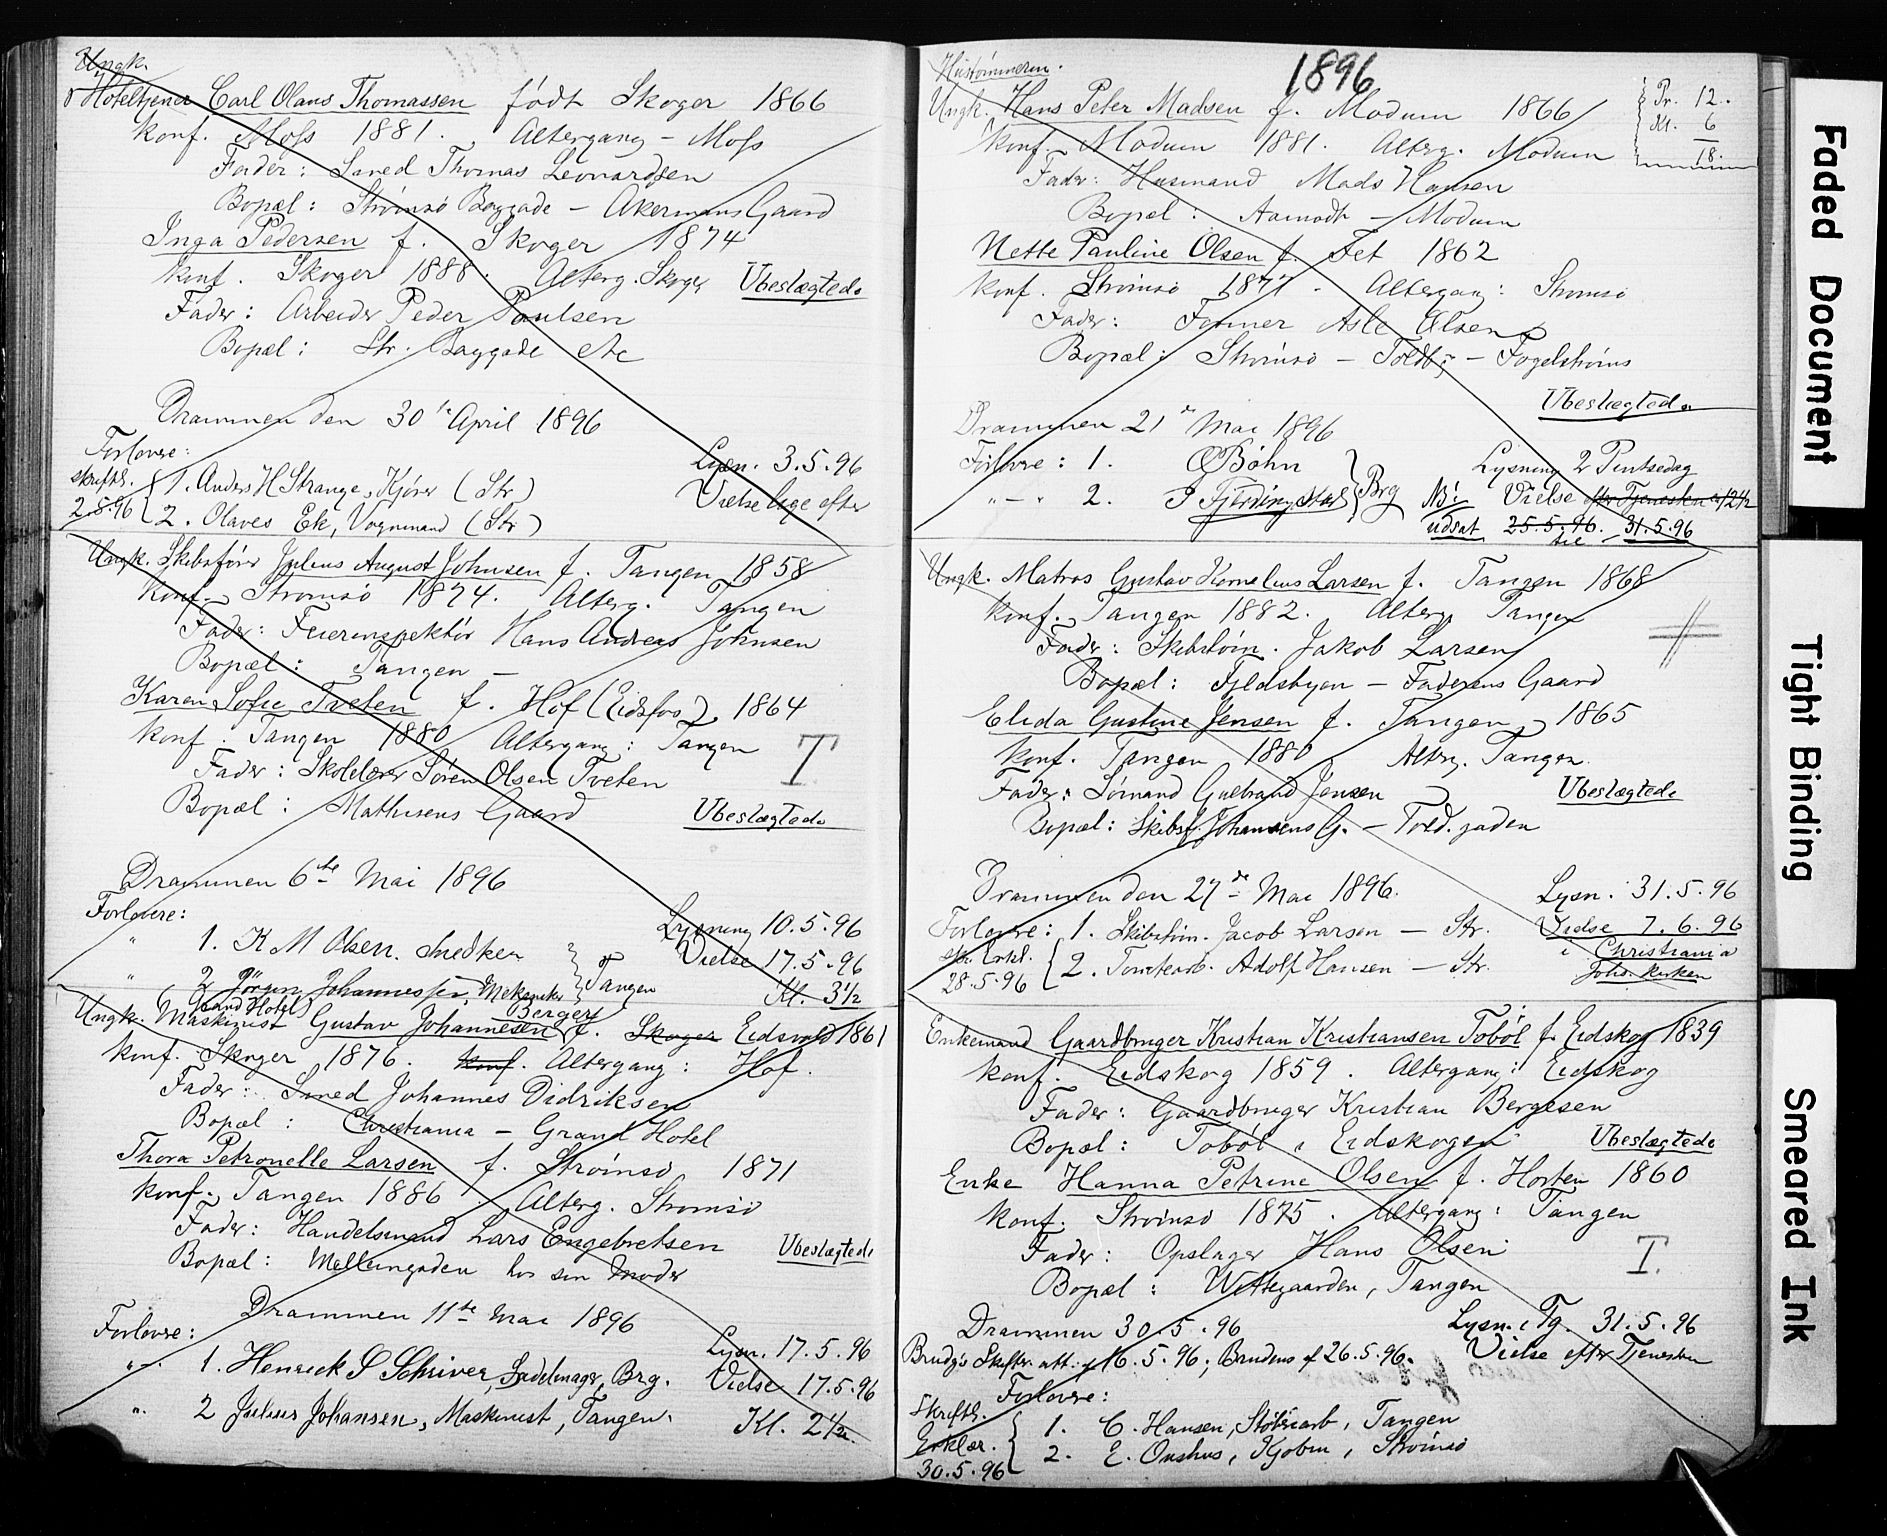 Ungk.
Hoteltjener Carl Olaus Thomassen født Skoger 1866
Konf. Moss 1881. Altergang - Moss
Fader: Smed Thomas Leonardsen
Bopæl: Strømsø Baggade - Akermans Gaard
Inga Pedersen f. Skoger 1874
Konf. Skoger 1888. Alterg. Skoger Ubeslægtede
Fader: Arbeider Peder Paulsen
Bopæl: Str. Baggade etc
Drammen den 30te April 1896
Forlovere:
skriftl. 1. Anders H Strange, Kjører (Str)
2.5.96 2. Olaves Ek, Vognmand (Str)
Lysn. 3.5.96
Vielse lige efter
Ungk. Skibsfører Julius August Johnsen f. Tangen 1858
Konf. Strømsø 1874. Alterg. Tangen
Fader: Feierinspektør Hans Andreas Johnsen
Bopæl: Tangen -
Karen Sofie Tveten f. Hof (Eidsfos) 1864
Konf. Tangen 1880 Altergang: Tangen T
Fader: Skolelærer Søren Olsen Tveten
Bopæl: Mathisens Gaard Ubeslægtede
Drammen 6te Mai 1896
Forlovere:
" 1. K M Olsen. Snedker
" 2 Jörgen Johannessen, Mekaniker Tangen
Lysning 10.5.96
Vielse 17.5.96
Kl. 3½
(Grand Hotel) Berger
Ungk. Maskinist Gustav Johannesen f. Skoger Eidsvold 1861
Konf. Skoger 1876. Konf. Altergang: Hof.
Fader: Smed Johannes Didriksen
Bopæl: Christiania - Grand Hotel
Thora Petronelle Larsen f. Strømsø 1871
Konf. Tangen 1886 Alterg. Strømsø
Fader: Handelsmand Lars Engebretsen Ubeslægtede
Bopæl: Mellemgaden hos sin Moder
Drammen 11te Mai 1896
Forlovere:
"- 1. Henrick S Schriver, Sadelmager, Brg.
". 2 Julius Johansen, Maskinist, Tangen.
Lysn. 17.5.96
Vielse 17.5.96
Kl. 2½.
1896
Hustømmerm.
Ungk. Hans Peter Madsen f. Modum 1866
Pr. 12.
Kl. 6
18.
Konf. Modum 1881. Alterg. Modum
Fader: Husmand Mads Hansen
Bopæl: Aamodt - Modum
Nette Pauline Olsen f. Fet 1862
Konf. Strømsø 1877. Altergang: Strømsø
Fader: Former Asle Olsen
Bopæl: Strømsø - Toldbg - Fogelstrøms
Ubeslægtede
Drammen 21de Mai 1896
Forlovere: 1. O Bøhn
"-" 2. Brg
Lysning 2 Pintsedag
NB! Vielse efter Tjenesten Kl 12½
udsat 25.5.96. til 31.5.96
Ungk. Matros Gustav Kornelius Larsen f. Tangen 1868
Konf. Tangen 1882. Alterg. Tangen
Fader: Skibstøm. Jakob Larsen
Bopæl: Fjeldsbyen - Faderens Gaard
Elida Gustine Jensen f. Tangen 1865
Konf. Tangen 1880 Alterg. Tangen.
Fader: Sømand Gulbrand Jensen Ubeslægtede
Bopæl: Skibsf. Johansens G. - Told.gaden
Drammen den 27de Mai 1896.
Forlovere: 1. Skibstøm. Jacob Larsen - Str.
skr. Erkl. 2. Tomtearb. Adolf Hansen - Str.
28.5.96
Lysn. 31.5.96
Vielse 7.6.96
i Christiania
Johs. Kirken
Enkemand Gaardbruger Kristian Kristiansen Tobøl f. Eidskog 1839
Konf. Eidskog 1859. Altergang: Eidskog
Fader: Gaardbruger Kristian Bergesen
Bopæl: Tobøl i Eidskogen Ubeslægtede
Enke Hanna Petrine Olsen f. Horten 1860
Konf. Strømsø 1875. Altergang: Tangen
Fader: Opslager Hans Olsen T.
Bopæl: Wittegaarden, Tangen
Drammen 30.5.96
Lysn. i Tg. 31.5.96
Brudg's Skifteatt. af 16.5.96; Brudens af 26.5.96. Vielse efter Tjenesten
Forlovere:
Skriftl. 1. C. Hansen, Støberiarb, Tangen
Erklær. 2. E. Onshus, Kjøbm, Strømsø
30.5.96
Faded Document
Tight Binding
Smeared Ink